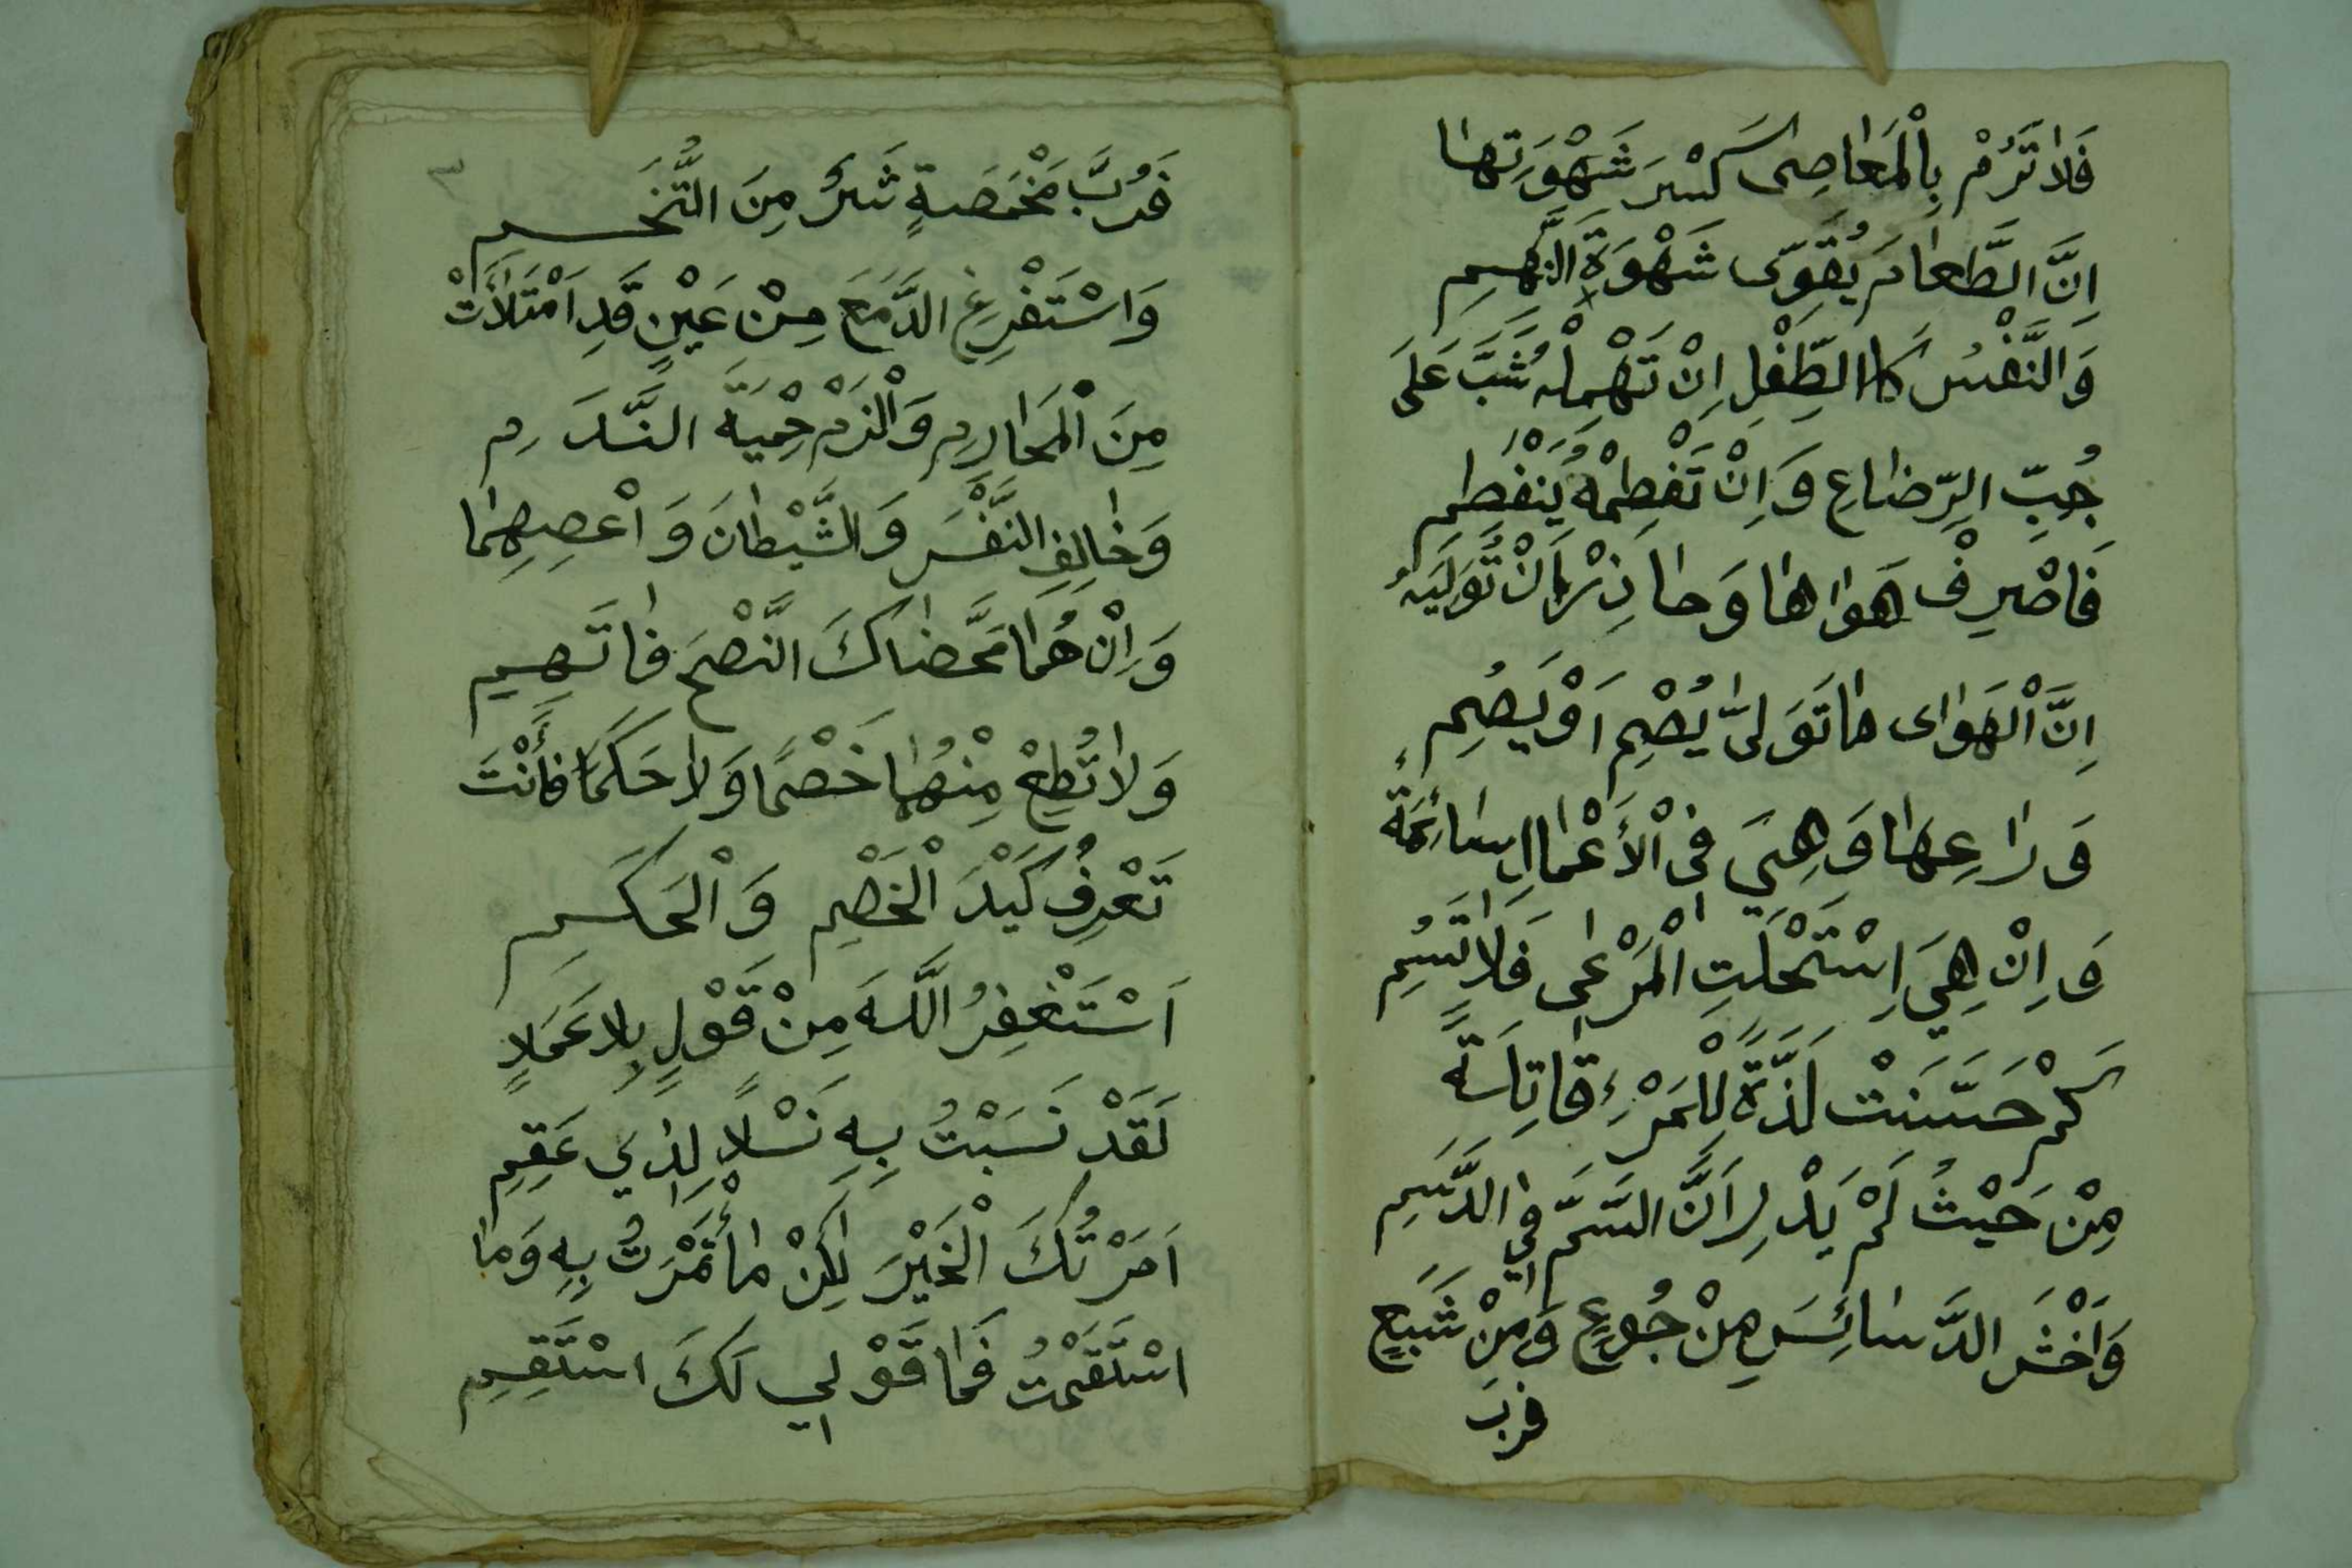 فَلَا تَرُمْ بِالْمَعَاصِى كَسْرَ شَهْوَتِهَا
اِنَّ الطَّعَامَ يُقَوِّى شَهْوَةَ النَّهِمِ
وَالنَّفْسُ كَاالطِّفْلِ اِنْ تَهْمِلْهُ شَبَّ عَلَى
حُبِّ الرِّضَاعِ وَاِنْ تَفْطِمْهُ يَنْفَطِمِ
فَاصْرِفْ هَوَاهَا وَحَاذِرْ اَنْ تُوَلِّيَهُ
اِنَّ الْهَوَاى مَا تَوَلىَّ يُصْمِ اَوْ يَصُمِ
وَرَاعِهَا وَهِيَ فِى الْأَعْمَاالِ سَائِمَةٌ
وَاِنْ هِيَ اِسْتَحْلَتِ الْمَرْعٰى فَلَا تَسُمِ
كَمْ حَسَّنَتْ لَذَّةً لِلْمَرْءِ قَاتِلَةً
مِنْ حَيْثُ لَمْ يَدْرِ اَنَّ السَّمَّ فِي الدَّسَمِ
وَاخْشَ الدَّسَائِسَ مِنْ جُوعٍ وَمِنْ شَبَعٍ
فربَ
٣
فَرُبَّ مَخْمَصَةٍ شَرٌّ مِنَ التُّخَمِ
وَاسْتَفْرِغِ الدَّمَعَ مِنْ عَيْنٍ قَدِ امْتَلَأَتْ
مِنَ الْمَحَارِمِ وَالْزَمْ حِمْيَةَ النَّدَمِ
وَخَالِفِ النَّفْسَ وَالشَّيْطَانَ وَاعْصِهِمَا
وَاِنْ هُمَا مَحَّضَاكَ النَّصْحَ فَاتَّهِمِ
وَلَا تُطِعْ مِنْهُمَا خَصْمًا وَلَا حَكَمًا فَأَنْتَ
تَعْرِفُ كَيْدَ الْخَصْمِ وَالْحَكَمِ
اَسْتَغْفِرُ اللَّهَ مِنْ قَوْلٍ بِلَا عَمَلٍ
لَقَدْ نَسَبْتُ بِهِ نَسْلًا لِذِي عَقِمِ
اَمَرْتُكَ الْخَيْرَ لٰكِنْ مَا أْتَمَرْتُ بِهِ وَمَا
اسْتَقَمْتُ فَمَا قَوْلِي لَكَ اسْتَقِمِ